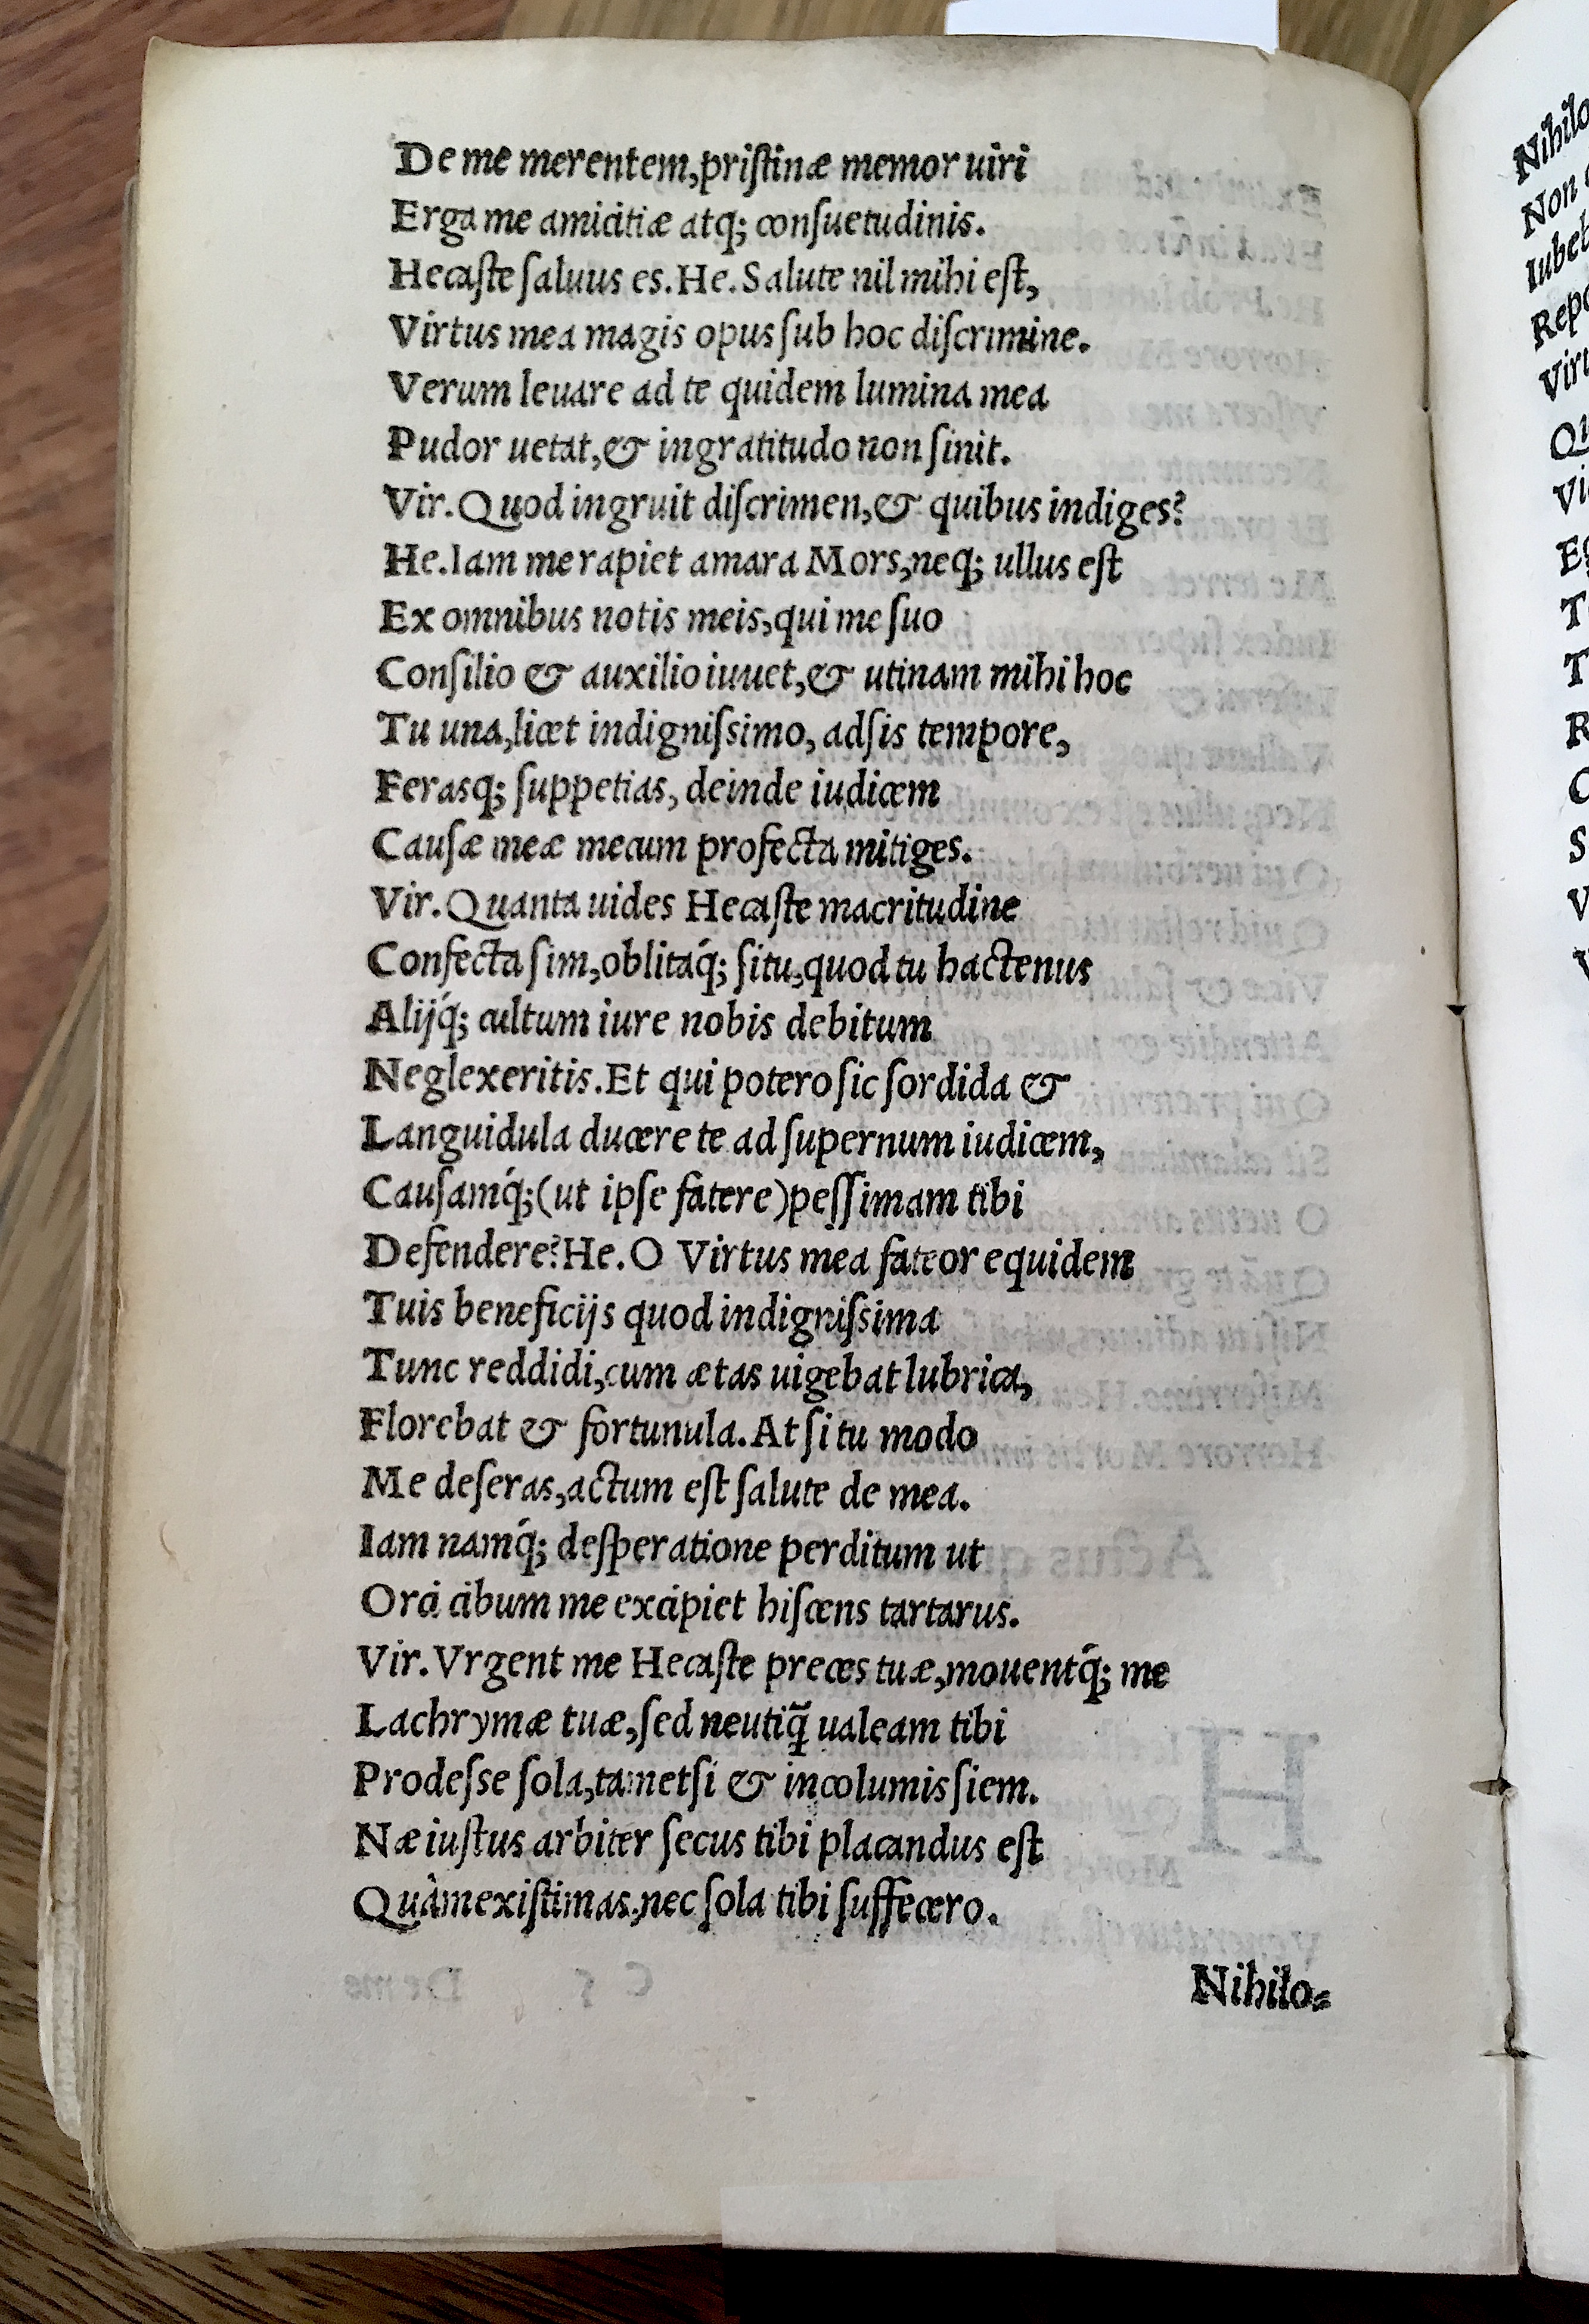 De me merentem, pristinæ memor uiri
Erga me amicitiæ atq; consuetudinis.
Hecaste saluus es. He. Salute nil mihi est,
Virtus mea magis opus sub hoc discrimine.
Verum leuare ad te quidem lumina mea
Pudor uetat, & ingratitudo non sinit.
Vir. Quod ingruit discrimen, & quibus indiges?
He. Iam me rapiet amara Mors, neq; ullus est
Ex omnibus notis meis, qui me suo
Consilio & auxilio iuuet, & utinam mihi hoc
Tu una, licet indignissimo, adsis tempore,
Ferasq; suppetias, deinde iudicem
Causæ meæ mecum profecta mitiges.
Vir. Quanta uides Hecaste macritudine
Confecta sim, oblitaq́; situ, quod tu hactenus
Alijq́; cultum iure nobis debitum
Neglexeritis. Et qui potero sic sordida &
Languidula ducere te ad supernum iudicem,
Causamq́; (ut ipse fatere) pessimam tibi
Defendere? He. O Virtus mea fateor equidem
Tuis beneficijs quod indignissima
Tunc reddidi, cum ætas uigebat lubrica,
Florebat & fortunula. At si tu modo
Me deseras, actum est salute de mea.
Iam namq́; desperatione perditum ut
Orci cibum me excipiet hiscens tartarus.
Vir. Vrgent me Hecaste preces tuæ, mouentq́; me
Lachrymæ tuæ, sed neutiq̃ ualeam tibi
Prodesse sola, tametsi & incolumis siem.
Næ iustus arbiter secus tibi placandus est
Quàm existimas, nec sola tibi suffecero.
Nihilo=
Nihilo
Non
Iubet
Repo